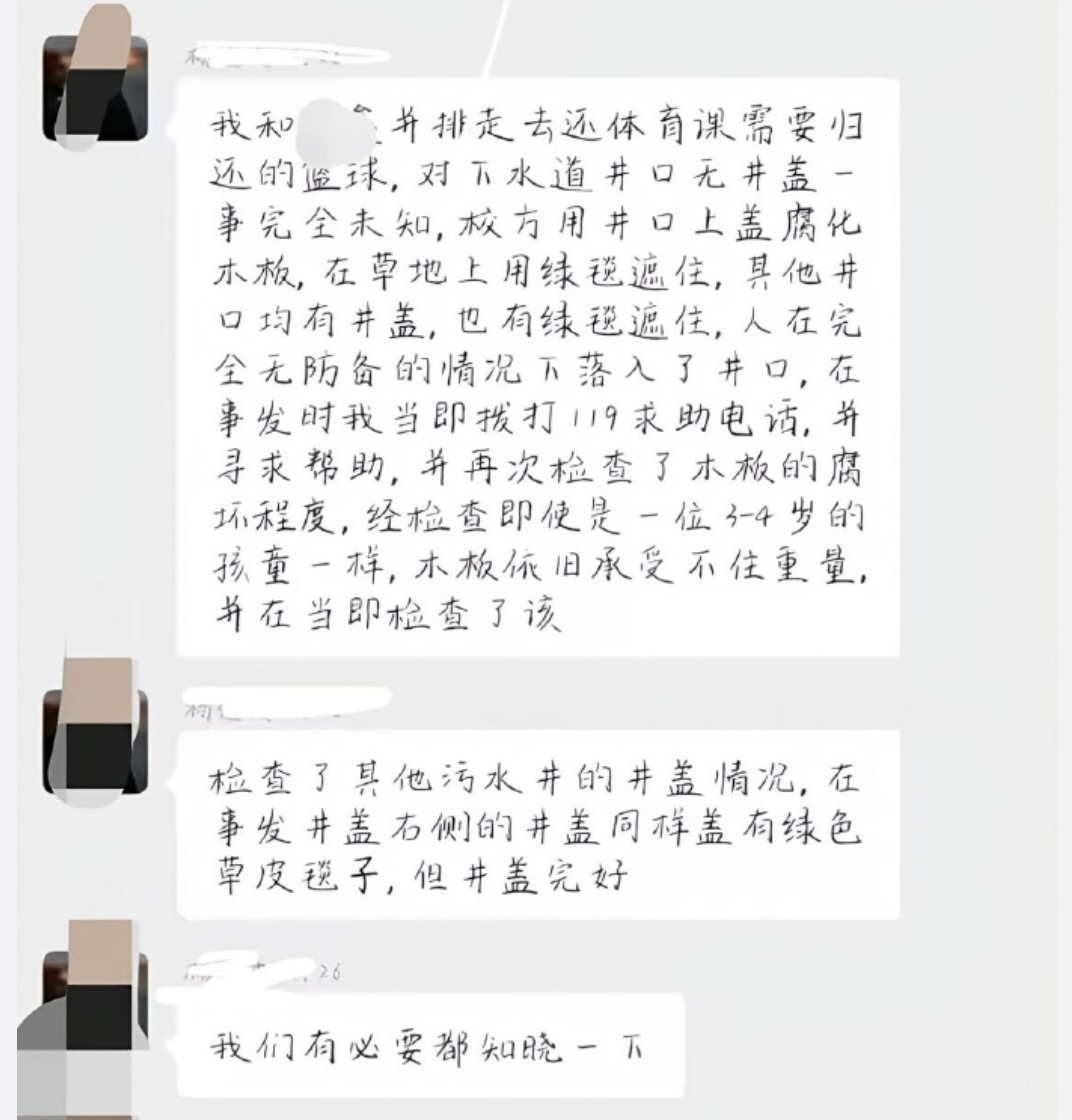 我和 并排走去还体育课需要归
还的篮球,对下水道井口无井盖一
事完全未知,校方用井口上盖腐化
木板,在草地上用绿毯遮住,其他井
口均有井盖,也有绿毯遮住,人在完
全无防备的情况下落入了井口,在
事发时我当即拨打119求助电话,并
寻求帮助,并再次检查了木板的腐
坏程度,经检查即使是一位3-4岁的
孩童一样,木板依旧承受不住重量,
并在当即检查了该
检查了其他污水井的井盖情况,在
事发井盖右侧的井盖同样盖有绿色
草皮毯子,但井盖完好
26
我们有必要都知晓一下